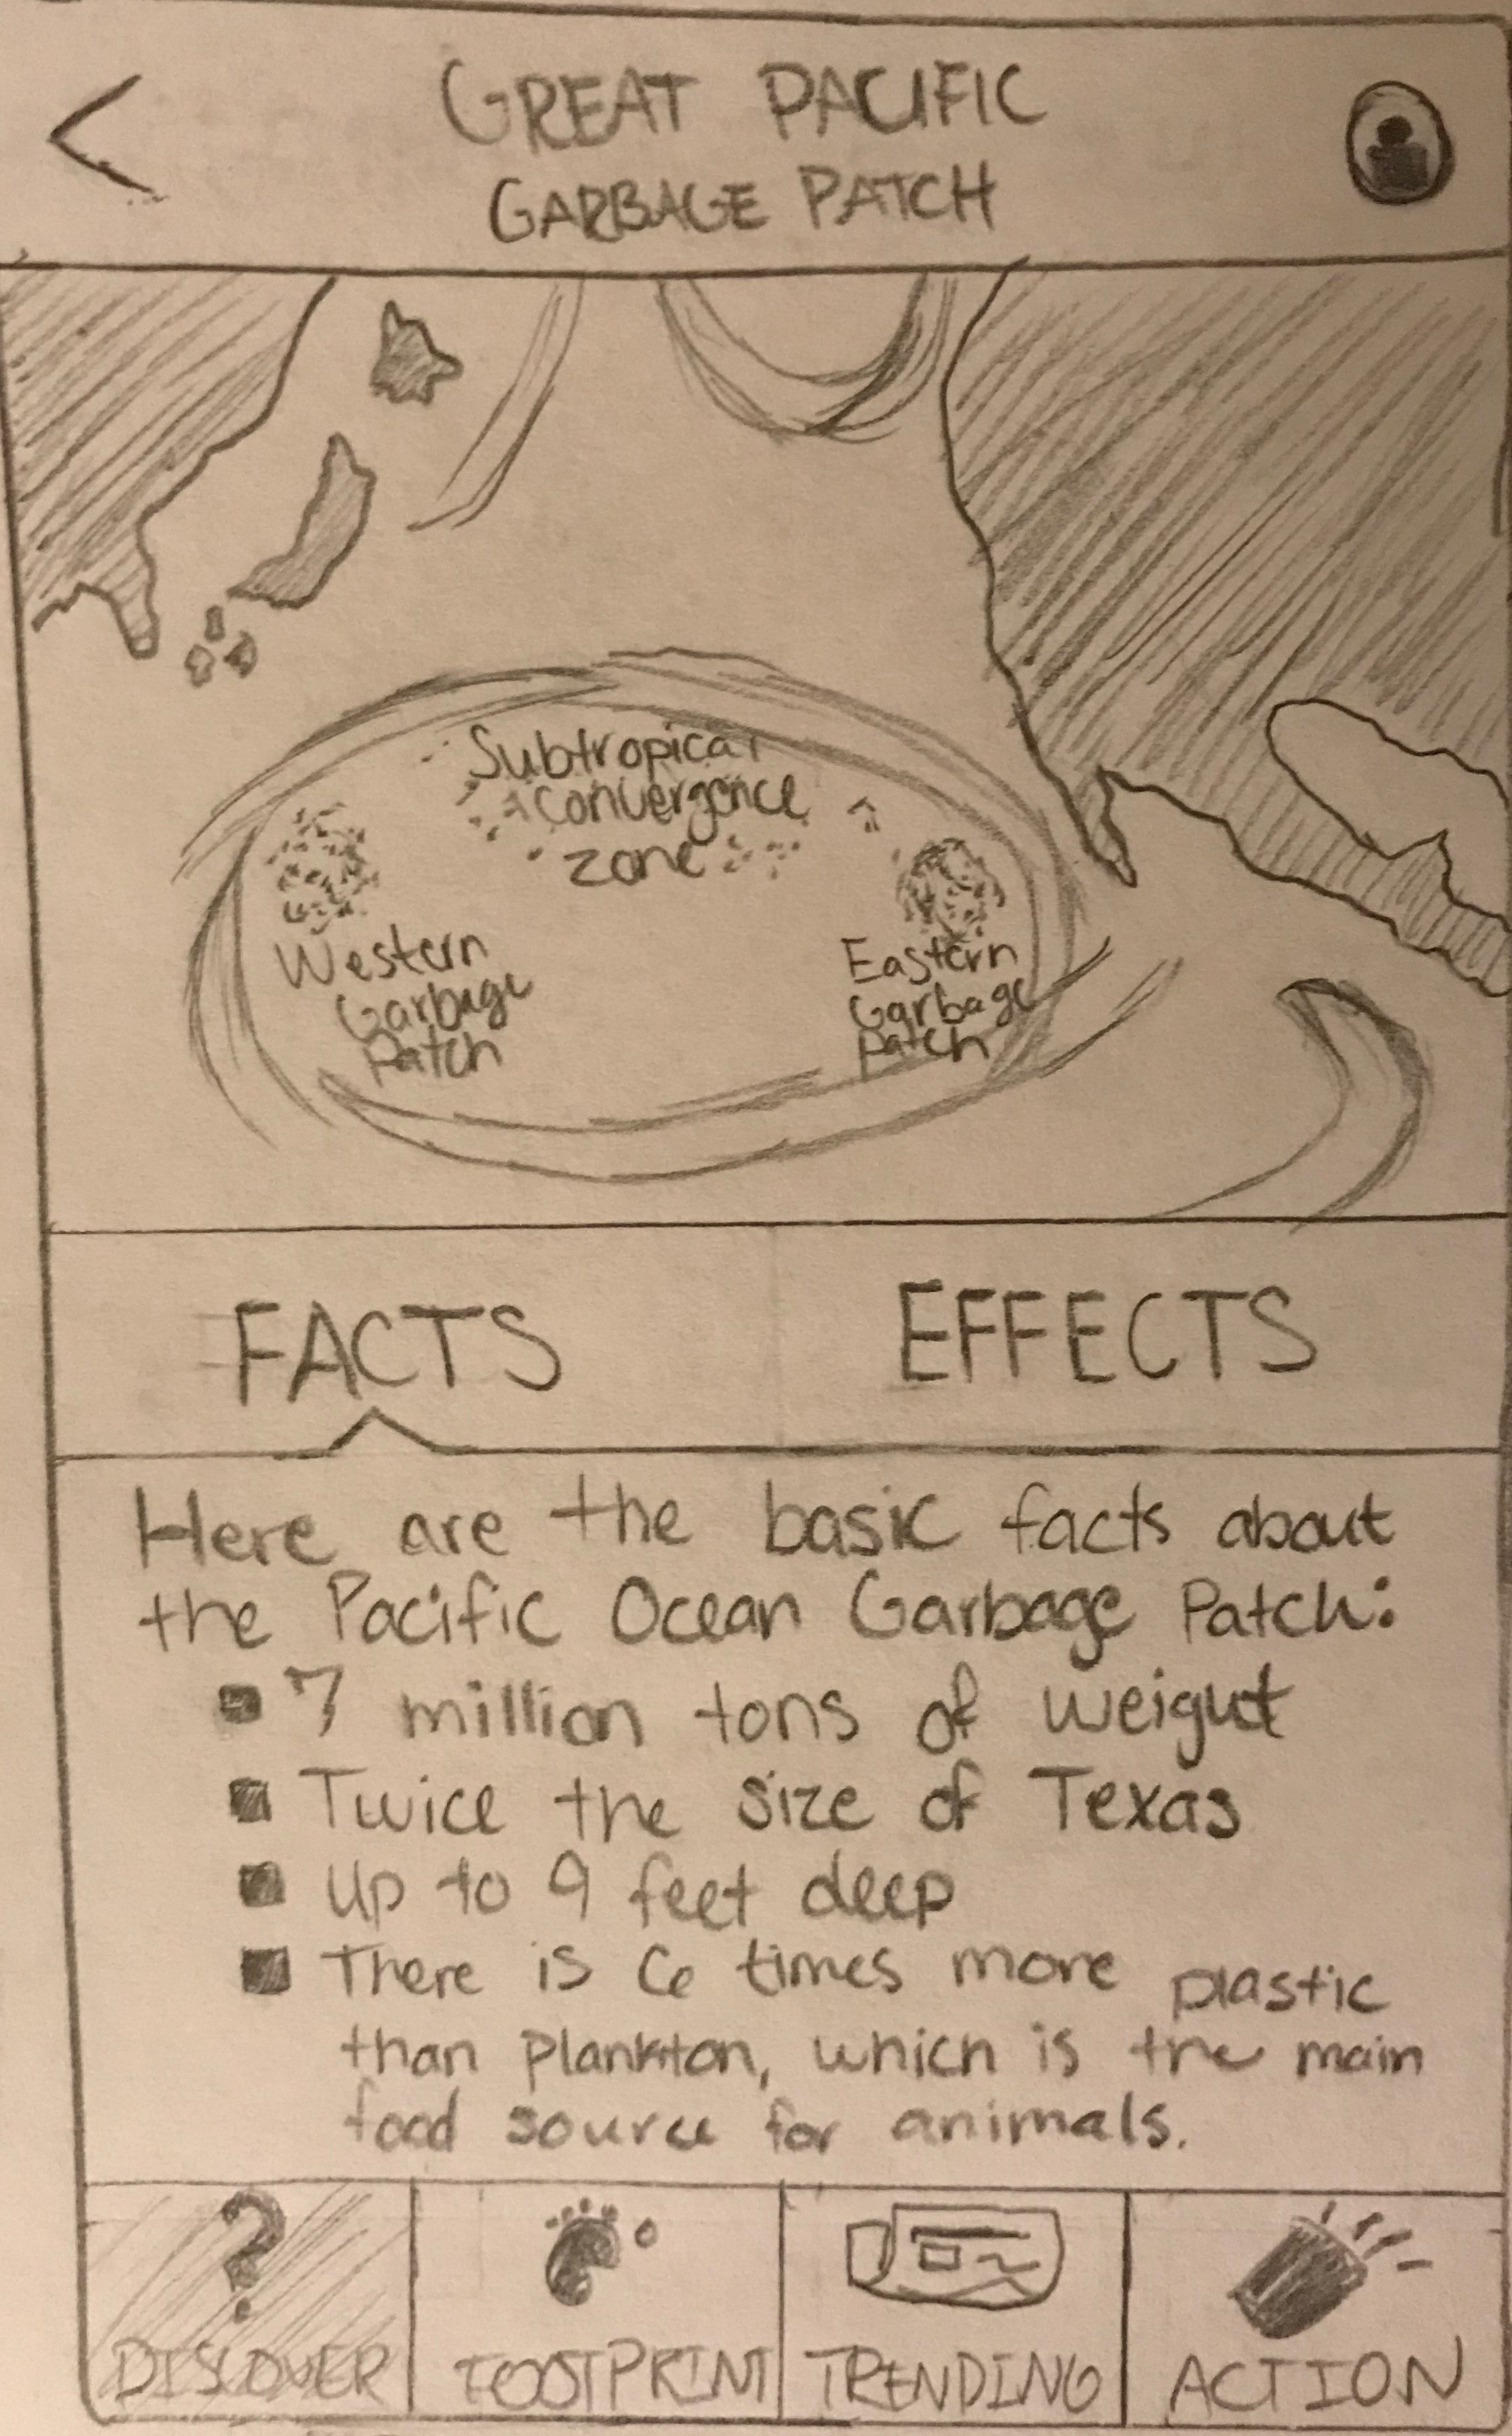 GREAT PACIFIC
GARBAGE PATCH
Subtropical
convergence
zone
Western
Garbage
Patch
Eastern
Garbage
Patch
FACTS
EFFECTS
Here are the basic facts about
the Pacific Ocean Garbage Patch:
7 million tons of weight
Twice the size of Texas
Up to 9 feet deep
There is 6 times more plastic
than plankton, which is the main
food source for animals.
?
DISCOVER
FOOTPRINT
TRENDING
ACTION